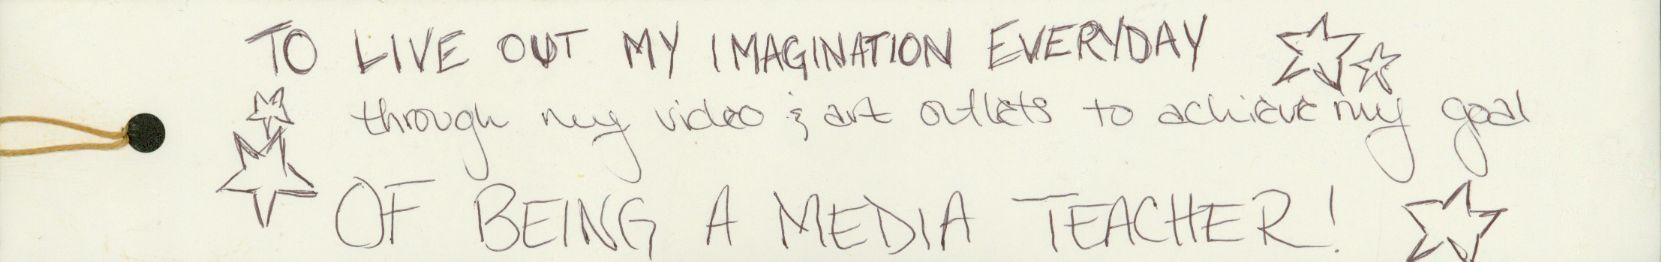 TO LIVE OUT MY IMAGINATION EVERYDAY
through my video & art outlets to achieve my goal
OF BEING A MEDIA TEACHER!